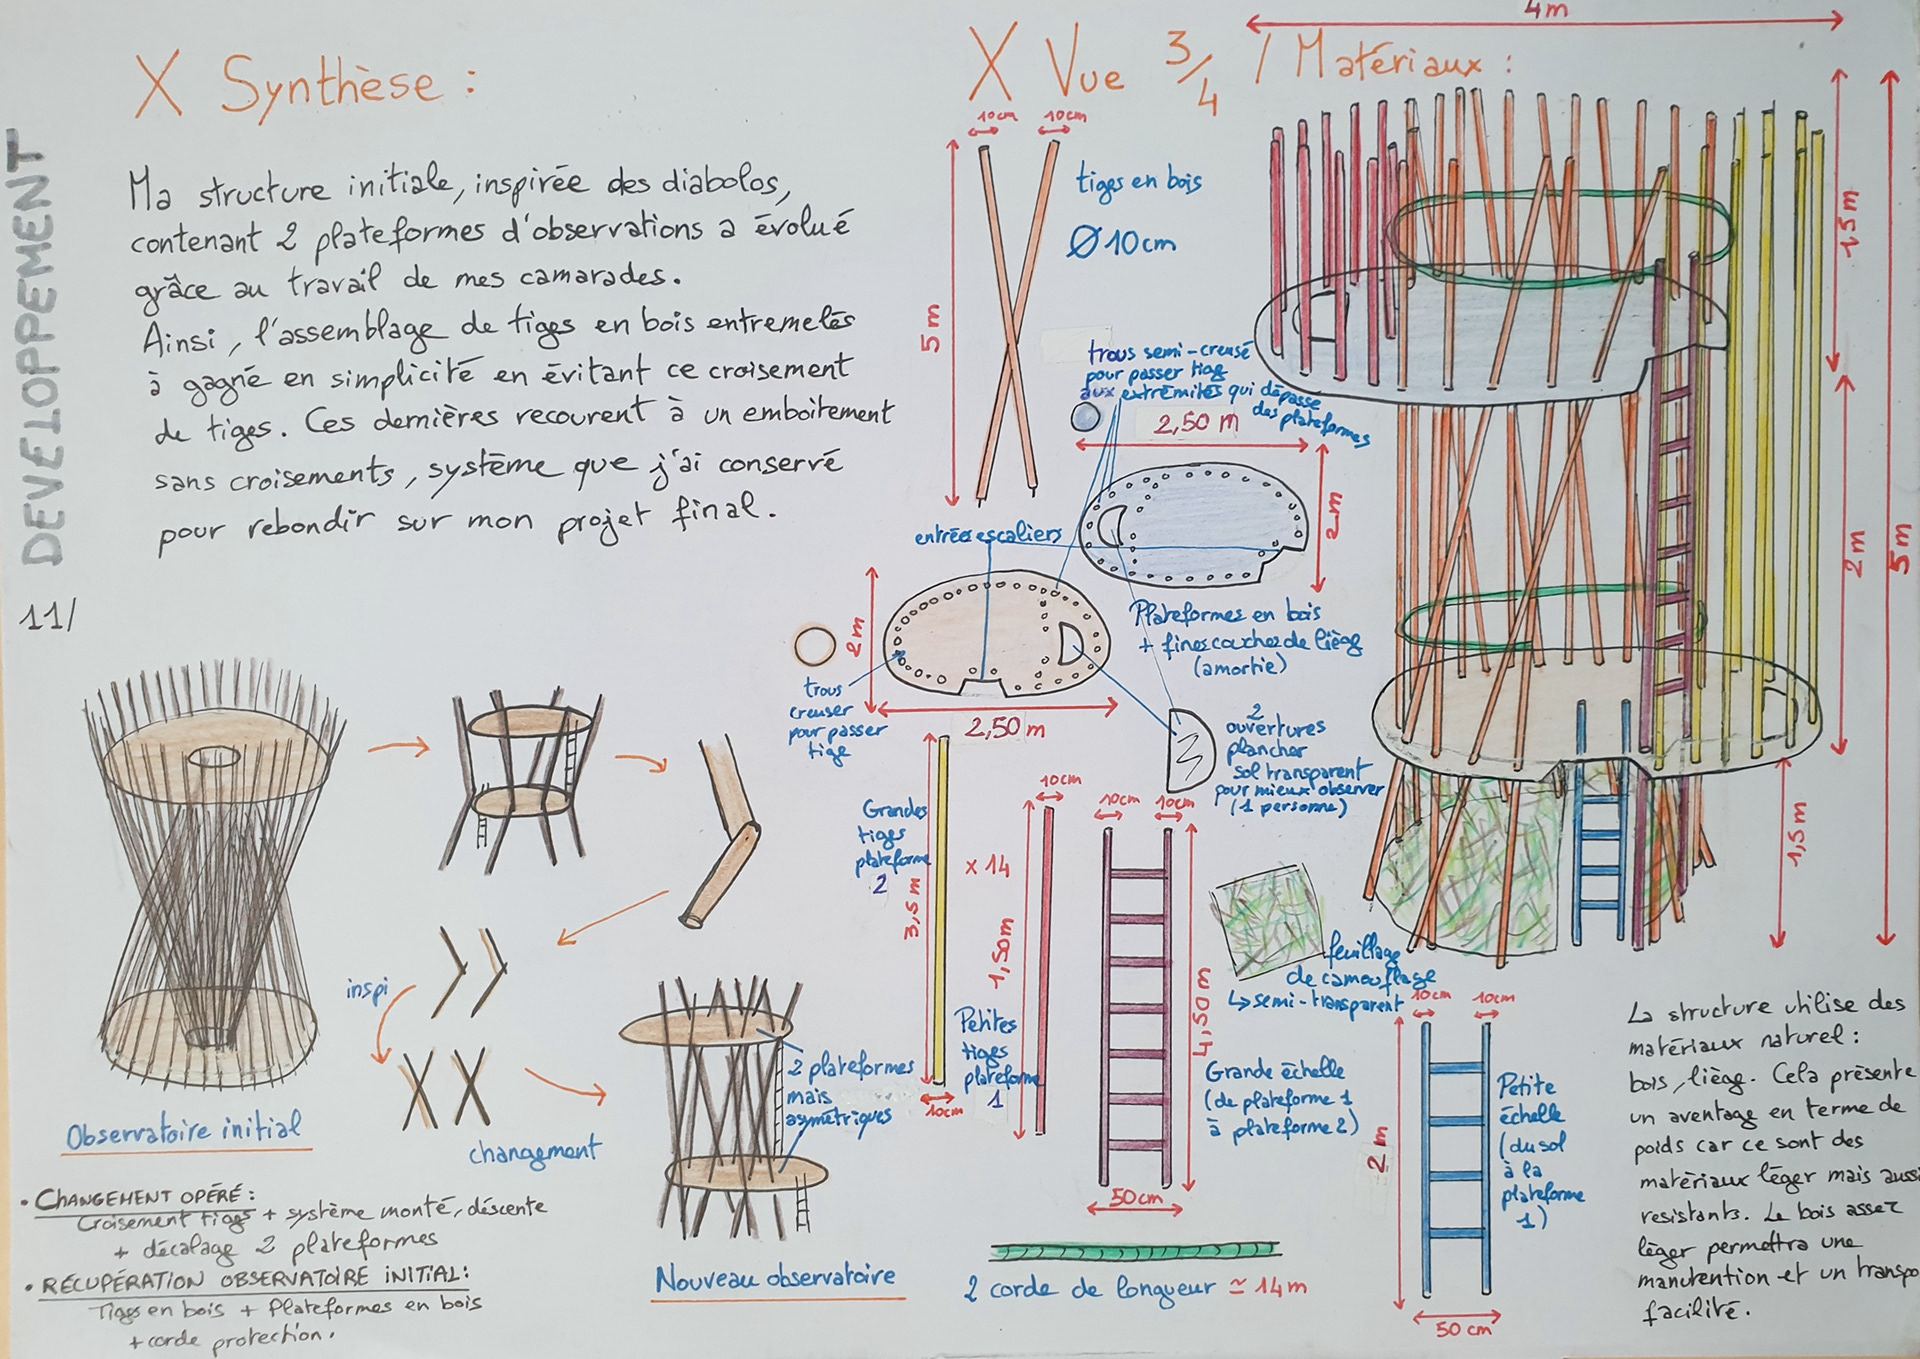 DEVELOPPEMENT
11/
X Synthèse :
Ma structure initiale, inspirée des diabolos,
contenant 2 plateformes d'observations a évolué
grâce au travail de mes camarades.
Ainsi, l'assemblage de tiges en bois entremelés
à gagné en simplicité en évitant ce croisement
de tiges. Ces dernières recourent à un emboitement
sans croisements, système que j'ai conservé
pour rebondir sur mon projet final.
Observatoire initial
inspi
changement
2 plateformes
mais
asymétriques
Nouveau observatoire
• CHANGEMENT OPÉRÉ :
Croisement tiges + système monté, déscente
+ décalage 2 plateformes
• RÉCUPÉRATION OBSERVATOIRE INITIAL :
Tiges en bois + Plateformes en bois
+ corde protection.
X Vue 3/4 / Matériaux :
10cm
10cm
5m
tiges en bois
Ø 10cm
trous semi-creusé
pour passer tige
aux extrêmités qui dépasse
des plateformes
2,50 m
2m
entrée escaliers
2m
2,50 m
trous
creuser
pour passer
tige
Plateformes en bois
+ fines couches de liège
(amortie)
2
ouvertures
plancher
sol transparent
pour mieux observer
(1 personne)
Grandes
tiges
plateforme
2
3,5m
10cm
x 14
10cm
1,50m
Petites
tiges
plateforme
1
10cm
10cm
4,50m
50cm
Grande échelle
(de plateforme 1
à plateforme 2)
feuillage
de camouflage
↳ semi-transparent
10cm
10cm
2m
50cm
Petite
échelle
(du sol
à la
plateforme
1)
2 corde de longueur ≃ 14m
4m
1,5m
2m
5m
1,5m
La structure utilise des
matériaux naturel :
bois, liège. Cela présente
un aventage en terme de
poids car ce sont des
matériaux léger mais aussi
resistants. Le bois assez
léger permettra une
manutention et un transpo
facilité.